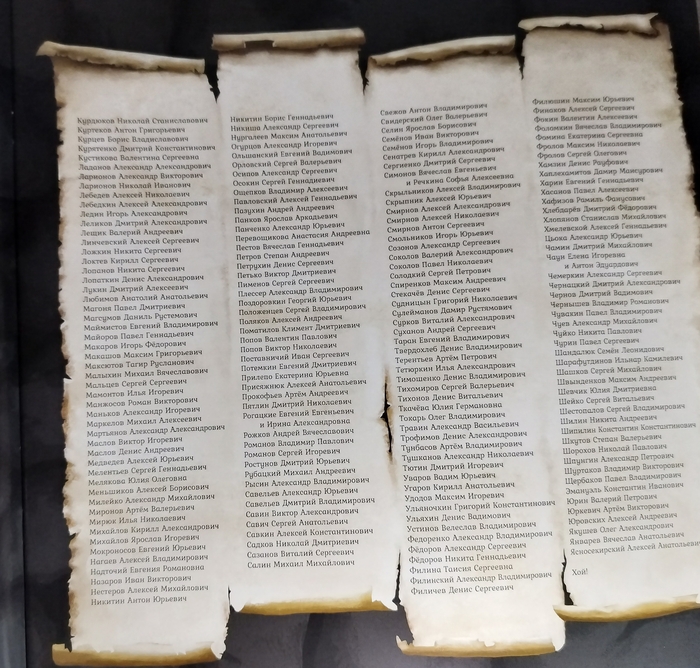 Курдюков Николай Станиславович
Куртеков Антон Григорьевич
Купцев Борис Владиславович
Куряченко Дмитрий Константинович
Кустикова Валентина Сергеевна
Ладанов Александр Александрович
Ларишов Александр Викторович
Ларионов Николай Иванович
Лебедев Алексей Николаевич
Лебедкин Алексей Александрович
Ледин Игорь Александрович
Леликов Дмитрий Александрович
Лещик Валерий Андреевич
Линчевский Алексей Сергеевич
Ложкин Никита Сергеевич
Локтев Кирилл Сергеевич
Лопанов Никита Сергеевич
Лопаткин Денис Александрович
Лукин Дмитрий Алексеевич
Любимов Анатолий Анатольевич
Магоня Павел Дмитриевич
Магсумов Даниль Рустемович
Маймистов Евгений Владимирович
Майоров Павел Геннадьевич
Макаров Игорь Фёдорович
Макашов Максим Григорьевич
Максютов Тагир Русланович
Малыхин Михаил Вячеславович
Мальцев Сергей Сергеевич
Мамонтов Илья Игоревич
Манжосов Роман Викторович
Маньков Александр Игоревич
Маркелов Михаил Алексеевич
Мартынов Александр Александрович
Маслов Виктор Игоревич
Маслов Денис Андреевич
Медведев Алексей Юрьевич
Мелентьев Сергей Геннадьевич
Мелякова Юлия Олеговна
Меньшиков Алексей Борисович
Милейко Александр Михайлович
Миронов Артём Валерьевич
Мирюк Илья Николаевич
Михайлов Кирилл Александрович
Михайлов Ярослав Игоревич
Мокроносов Евгений Юрьевич
Нагаев Алексей Владимирович
Надточий Евгения Романовна
Назаров Иван Викторович
Нестеров Алексей Михайлович
Никитин Антон Юрьевич
Никитин Борис Геннадьевич
Никиша Александр Сергеевич
Нургалеев Максим Анатольевич
Огурцов Александр Игоревич
Ольшанский Евгений Вадимович
Орловский Сергей Валерьевич
Осипов Александр Сергеевич
Осокин Сергей Геннадьевич
Ошепков Владимир Алексеевич
Павловский Алексей Геннадьевич
Пазухин Андрей Андреевич
Панков Ярослав Аркадьевич
Панченко Александр Юрьевич
Перевощикова Анастасия Андреевна
Пестов Вячеслав Геннадьевич
Петров Степан Андреевич
Петрухин Денис Сергеевич
Петько Виктор Дмитриевич
Пименов Сергей Сергеевич
Плессер Александр Владимирович
Поздоровкин Георгий Юрьевич
Положенцев Сергей Владимирович
Поляков Алексей Андреевич
Поматилов Климент Дмитриевич
Попов Валентин Павлович
Попов Виктор Николаевич
Поставничий Иван Сергеевич
Потемкин Евгений Дмитриевич
Прилепо Екатерина Юрьевна
Присяжнюк Алексей Анатольевич
Прокофьев Артём Андреевич
Пятлин Дмитрий Николаевич
Рогацкие Евгений Евгеньевич
и Ирина Александровна
Рожков Андрей Вячеславович
Романов Владимир Павлович
Романов Сергей Игоревич
Ростунов Дмитрий Юрьевич
Рубацкий Михаил Андреевич
Рысин Александр Владимирович
Савельев Александр Юрьевич
Савельев Дмитрий Владимирович
Савин Виктор Александрович
Савич Сергей Анатольевич
Савкин Алексей Константинович
Садков Николай Дмитриевич
Сазанов Виталий Сергеевич
Салин Михаил Михайлович
Свежов Антон Владимирович
Свидерский Олег Валерьевич
Селин Ярослав Борисович
Семёнов Иван Викторович
Семёнов Игорь Владимирович
Сенатрев Кирилл Александрович
Сергиенко Дмитрий Сергеевич
Симонова Вячеслав Евгеньевич
и Речкина Софья Алексеевна
Скрыльников Алексей Владимирович
Скрыпник Алексей Юрьевич
Смирнов Алексей Александрович
Смирнов Алексей Николаевич
Смирнов Антон Сергеевич
Смольников Игорь Юрьевич
Созонов Александр Сергеевич
Соколов Валерий Александрович
Соколов Павел Николаевич
Солодкий Сергей Петрович
Спиренков Максим Андреевич
Стекачёв Денис Сергеевич
Судницын Григорий Николаевич
Сулейманов Дамир Рустямович
Сурков Виталий Александрович
Суханов Андрей Сергеевич
Таран Евгений Владимирович
Твердохлеб Денис Владимирович
Терентьев Артём Петрович
Тетюркин Илья Александрович
Тимошенко Денис Владимирович
Тихомиров Сергей Валерьевич
Тихонов Денис Витальевич
Ткачёва Юлия Германовна
Токарь Олег Владимирович
Травин Александр Васильевич
Трофимов Денис Александрович
Тунбаотв Артём Владимирович
Тушканов Александр Николаевич
Тютин Дмитрий Игоревич
Уваров Вадим Юрьевич
Угаров Кирилл Анатольевич
Удодов Максим Игоревич
Ульяночкин Григорий Константинович
Ульяхин Денис Вадимович
Устинов Велеслав Владимирович
Федоренко Александр Владимирович
Фёдоров Александр Сергеевич
Фёдоров Никита Геннадьевич
Филина Таисия Сергеевна
Филинский Александр Владимирович
Филичев Денис Сергеевич
Филюшин Максим Юрьевич
Финаков Алексей Сергеевич
Фокин Валентин Алексеевич
Фоломкин Вячеслав Владимирович
Фомина Екатерина Сергеевна
Фролов Максим Николаевич
Фролов Сергей Олегович
Хамлия Денис Рауфович
Хаплехамитов Дамир Мансурович
Харин Евгений Геннадьевич
Хасанов Павел Алексеевич
Хафизов Рамиль Фанусович
Хлебдарёв Дмитрий Фёдорович
Хлопянов Станислав Михайлович
Хмелевской Алексей Геннадьевич
Цьока Александр Юрьевич
Чамин Дмитрий Михайлович
Чаун Елена Игоревна
и Антон Эдуардович
Чемеркин Александр Сергеевич
Чернацкий Дмитрий Александрович
Чернов Дмитрий Вадимович
Чернышев Владимир Романович
Чувахин Павел Владимирович
Чуев Александр Михайлович
Чуйко Никита Павлович
Чурин Павел Сергеевич
Шандалюк Семён Леонидович
Шарафутдинов Ильнар Камилевич
Шашков Сергей Михайлович
Швынденков Максим Андреевич
Шевчик Юлия Дмитриевна
Шейко Сергей Витальевич
Шестопалов Сергей Владимирович
Шилин Никита Андреевич
Шипилин Константин Константинович
Шкутов Степан Валерьевич
Шорохов Николай Павлович
Шпунгин Александр Петрович
Шуртаков Владимир Викторович
Щербаков Павел Владимирович
Эмануэль Константин Иванович
Юрин Валерий Петрович
Юркевич Артём Викторович
Юровских Алексей Андреевич
Якушев Олег Александрович
Январев Вячеслав Анатольевич
Ясносекирский Алексей Анатольевич
Хой!